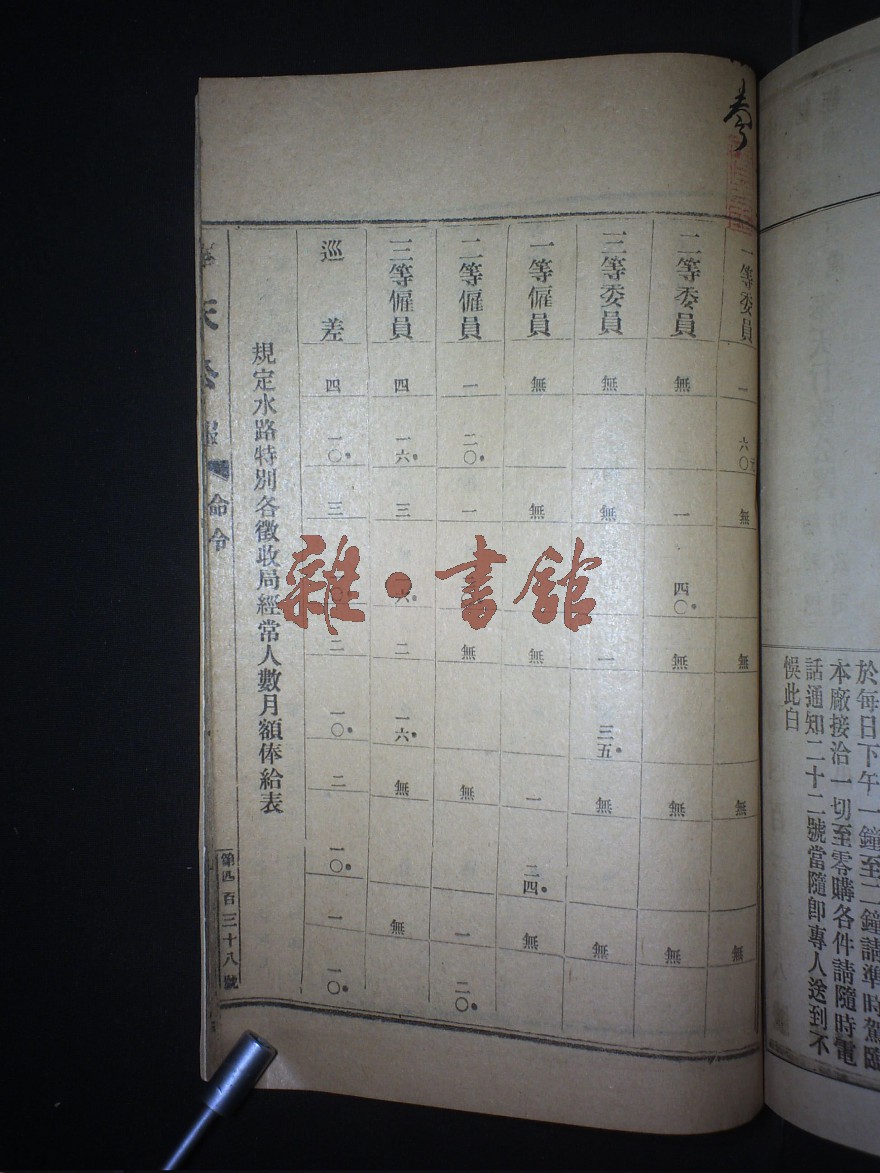 於每日下午一鐘至二鐘請準時駕臨
本廠接洽一切至零購各件請隨時電
話通知二十二號當隨卽專人送到不
悞此白
一等委員 一 六〇元 無 無 無 無
二等委員 無 一 四〇 無 無 無
三等委員 無 無 一 三五 無 無
一等僱員 無 無 無 一 二四 無
二等僱員 一 二〇 一 無 無 一 二〇
三等僱員 四 一六 三 二 一六 無 無
巡差 四 一〇 三 二 一〇 二 一〇 一 一〇
規定水路特別各徵收局經常人數月額俸給表
天公報 命令 第四百三十八號
雜·書館